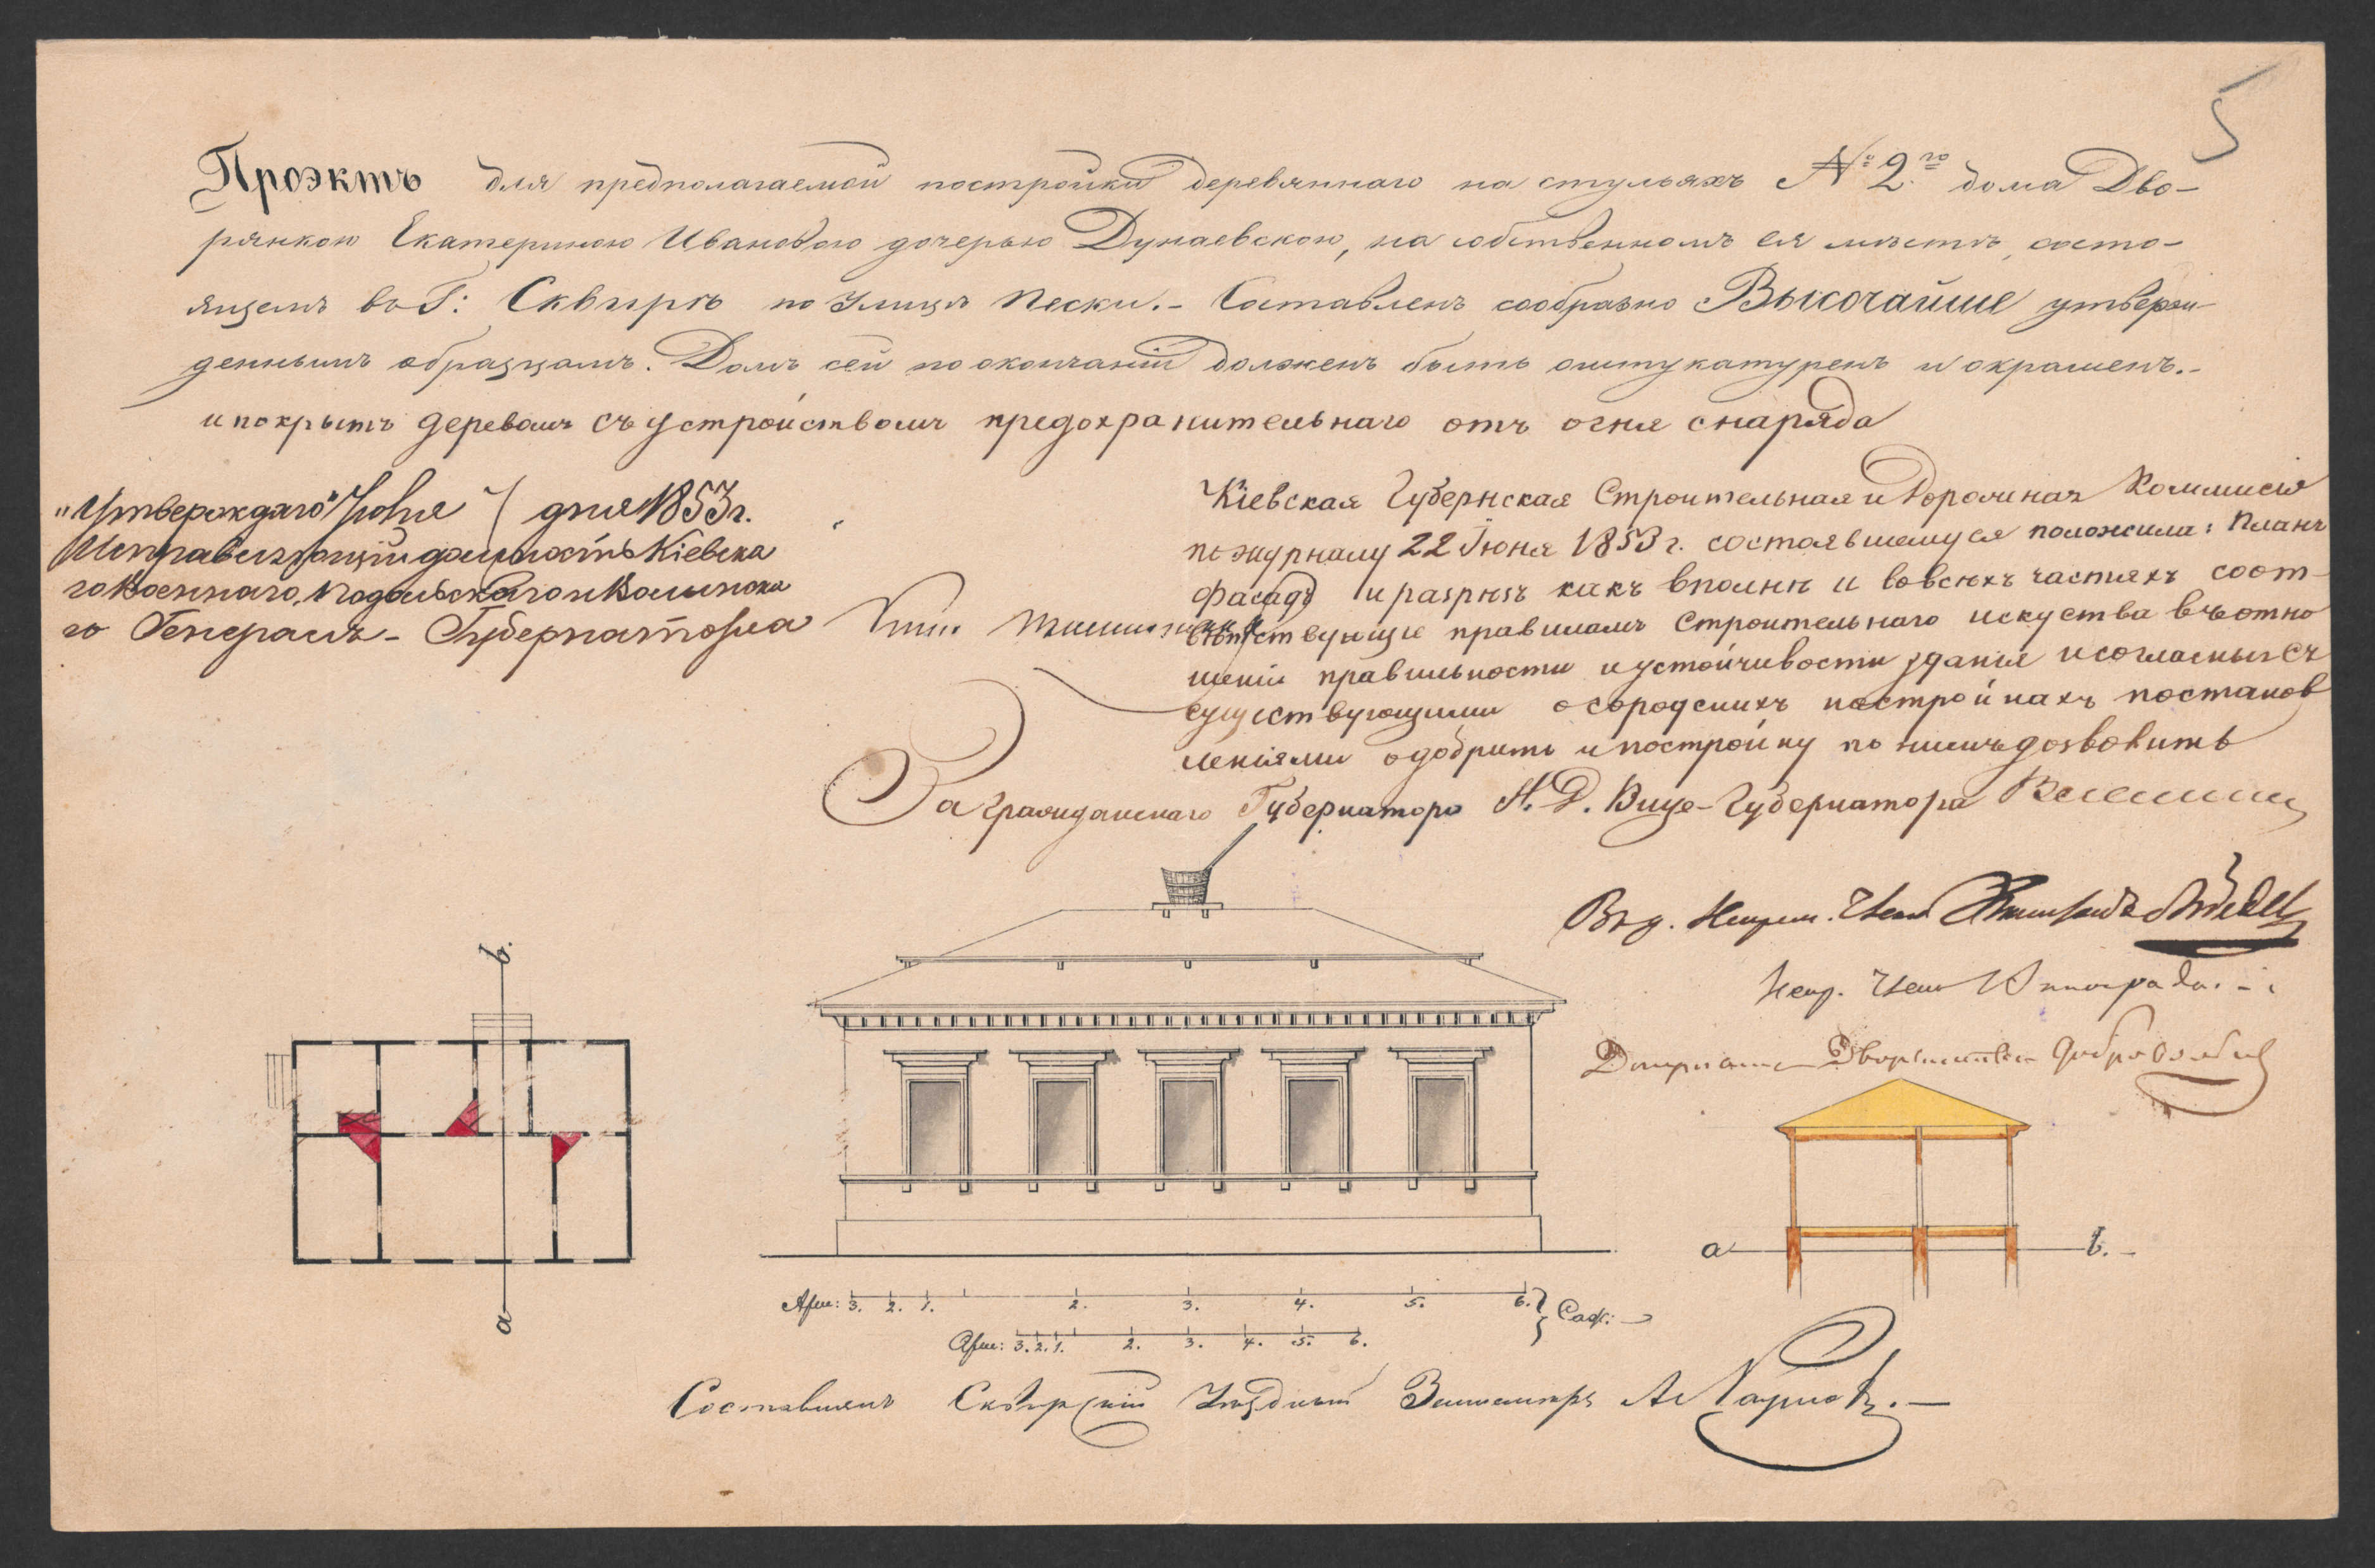 5
Проэктъ для предполагаемой постройки деревяннаго на стульяхъ № 2го дома Дво-
рянкою Екатериною Ивановою дочерью Дунаевскою, на собственномъ ея мѣстѣ, состо-
ящемъ въ Г: Сквирѣ по Улицѣ Пески.- Составленъ сообразно Высочайше утверж-
деннымъ образцамъ. Домъ сей по окончаніи долженъ быть оштукатуренъ и окрашенъ.-
и покрытъ деревомъ съ устройствомъ предохранительнаго отъ огня снаряда
"Утверждаю" Іюля дня 1853 г.
Исправляющій должность Кіевска
го Военнаго, Подольскаго и Волынска
го Генералъ-Губернатора
Кіевская Губернская Строительная и Дорожная Коммисія
по журналу 22 Іюня 1853 г. состоявшемуся положила: Планъ
Фасадъ и разрѣзъ какъ вполнѣ и вовсѣхъ частяхъ соот-
вѣтствующіе правиламъ Строительнаго искуства въ отно
шеніи правильности и устойчивости зданія и согласныя съ
существующими о городскихъ постройкахъ постанов
леніями одобрить и постройку по нимъ дозволить
За Гражданскаго Губернатора И. Д. Вице-Губернатора
Непр. Член
b.
a
a b.
Арш: 3. 2. 1. 2. 3. 4. 5. 6. } Саж:
Арш: 3. 2. 1. 2. 3. 4. 5. 6.
Составилъ Сквирскій Уѣздный Землемѣръ